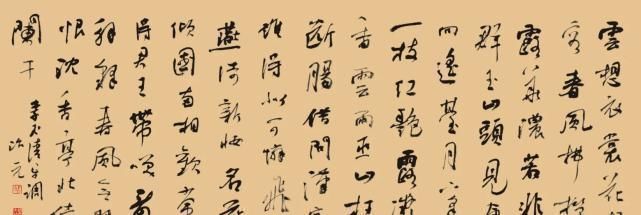 雲想衣裳花
容春風拂檻
露華濃若非
群玉山頭見
向瑤臺月下
一枝紅艷露凝
香雲雨巫山枉
斷腸借問漢宮
誰得似可憐飛
燕倚新妝名花
傾國兩相歡常
得君王帶笑看
解釋春風無
恨沉香亭北倚
闌干
李白清平調